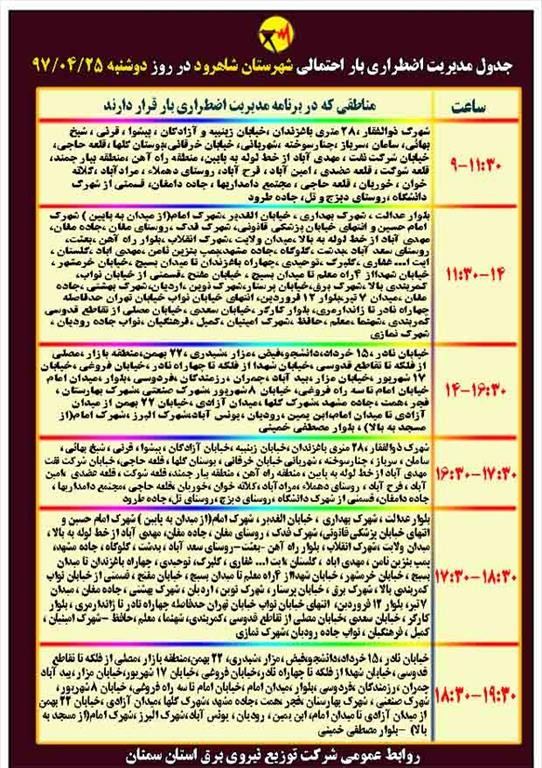 جدول مدیریت اضطراری بار احتمالی شهرستان شاهرود در روز دوشنبه ۹۷/۰۴/۲۵
ساعت
مناطقی که در برنامه مدیریت اضطراری بار قرار دارند
۹-۱۱:۳۰
شهرک ذوالفقار ،۲۸ متری باغزندان ،خیابان زینبیه و آزادگان ، پیشوا ، قرنی ، شیخ
بهائی، سامان ،سرباز ،چنارسوخته ،شهریانی، خیابان خرقانی،بوستان گلها ،قلعه حاجی،
خیابان شرکت نفت ، مهدی آباد از خط لوله به پایین، منطقه راه آهن ،منطقه بیار جمند،
قلعه شوکت ، قلعه عضدی ، امین آباد ، فرح آباد، روستای دهملاء ، مرادآباد ،کلاته
خوان ، خوریان ، قلعه حاجی ، مجتمع دامداریها ، جاده دامغان، قسمتی از شهرک
دانشگاه ،روستای دیزج و تل، جاده طرود
۱۱:۳۰-۱۴
بلوار عدالت ، شهرک بهداری ، خیابان الغدیر ،شهرک امام(از میدان به پایین ) شهرک
امام حسین و انتهای خیابان پزشکی قانونی، شهرک فدک ،روستای مغان ،جاده مغان،
مهدی آباد از خط لوله به بالا ،میدان ولایت ،شهرک انقلاب ،بلوار راه آهن ،بعثت،
روستای سعد آباد ،بدشت ،کلوکاه ،جاده مشهد،پمپ بنزین ثامن ،مهدی اباد ،گلستان ،
ایت ا... غفاری ، گلبرک ،توحیدی ،چهاراه باغزندان تا میدان بسیج ، خیابان خرمشهر ،
خیابان شهدا،از ۴راه معلم تا میدان بسیج ، خیابان مفتح ،قسمتی از خیابان نواب،
کمربندی بالا ،شهرک برق،خیابان پرستار،شهرک نوین ،اردیان، شهرک بهشتی ،جاده
مغان ، میدان ۷ تیر،بلوار ۱۲ فروردین، انتهای خیابان نواب خیابان تهران حدفاصله
چهاراه نادر تا ژاندارمری، بلوار کارگر ،خیابان سعدی ،خیابان مصلی از تقاطع قدوسی
کمربندی ،شهنما ،معلم ،حافظ ،شهرک امینیان ،کمیل ، فرهنگیان ، نواب جاده رودیان ،
شهرک نمازی
۱۴-۱۶:۳۰
خیابان نادر ،۱۵ خرداد،دانشجو،فیض ،مزار ،شیدری، ۲۲ بهمن،منطقه بازار ،مصلی
از فلکه تا تقاطع قدوسی ،خیابان شهدا از فلکه تا چهاراه نادر،خیابان فروغی ،خیابان
۱۷ شهریور ،خیابان مزار ،بید آباد ،چمران ،رزمندگان ،فردوسی ،بلوار ،میدان امام
خیابان امام تا سه راه فروغی، خیابان ۸ شهریور ،شهرک صنعتی ،شهرک بهارستان ،
فجر ،همت ، جاده مشهد ،شهرک گلها ،میدان آزادی ، خیابان ۲۲ بهمن از میدان
آزادی تا میدان امام،ابن یمین ،رودیان ، یونس آباد،شهرک البرز ،شهرک امام(از
مسجد به بالا) ، بلوار مصطفی خمینی
۱۶:۳۰-۱۷:۳۰
شهرک ذوالفقار ،۲۸ متری باغزندان، خیابان زینبیه ،خیابان آزادگان ، پیشوا ، قرنی ، شیخ بهائی ،
سامان ، سرباز ، چنارسوخته ، شهریانی خیابان خرقانی ، بوستان گلها ، قلعه حاجی، خیابان شرکت نفت
مهدی آباد از خط لوله به پایین ، منطقه راه آهن ، منطقه بیار جمند، قلعه شوکت ، قلعه عضدی ،امین
آباد ، فرح آباد ، روستای دهملاء ، مرادآباد ،کلاته خوان ، خوریان ،قلعه حاجی،مجتمع دامداریها ،
جاده دامغان، قسمتی از شهرک دانشگاه ،روستای دیزج ،روستای تل، جاده طرود
۱۷:۳۰-۱۸:۳۰
بلوار عدالت ، شهرک بهداری ، خیابان الغدیر ، شهرک امام(از میدان به پایین ) شهرک امام حسین و
انتهای خیابان پزشکی قانونی، شهرک فدک ، روستای مغان ، جاده مغان، مهدی آباد از خط لوله به بالا ،
میدان ولایت ،شهرک انقلاب ، بلوار راه آهن -بعثت-روستای سعد آباد ، بدشت ، کلوکاه ، جاده مشهد،
پمپ بنزین ثامن، مهدی اباد ، گلستان ،ایت ا... غفاری ، گلبرک، توحیدی ، چهاراه باغزندان تا میدان
بسیج ، خیابان خرمشهر، خیابان شهدا،از ۴راه معلم تا میدان بسیج، خیابان مفتح ، قسمتی از خیابان نواب
کمربندی بالا، شهرک برق ، خیابان پرستار، شهرک نوین، اردیان ، شهرک بهشتی ، جاده مغان ، میدان
۷تیر، بلوار ۱۲ فروردین، انتهای خیابان نواب خیابان تهران حدفاصله چهاراه نادر تا ژاندارمری ، بلوار
کارگر ، خیابان سعدی ،خیابان مصلی از تقاطع قدوسی ،کمربندی،شهنما ، معلم،حافظ -شهرک امینیان ،
کمیل ، فرهنگیان ، نواب جاده رودیان ،شهرک نمازی
۱۸:۳۰-۱۹:۳۰
خیابان نادر ،۱۵ خرداد،دانشجو،فیض،مزار،شیدری، ۲۲ بهمن،منطقه بازار ،مصلی از فلکه تا تقاطع
قدوسی،خیابان شهدا از فلکه تا چهاراه نادر،خیابان فروغی ، خیابان ۱۷ شهریور،خیابان مزار،بید آباد
چمران ،رزمندگان ،فردوسی ،بلوار ،میدان امام ،خیابان امام تا سه راه فروغی ، خیابان ۸شهریور،
شهرک صنعتی ، شهرک بهارستان ،فجر،همت ،جاده مشهد ،شهرک گلها ،میدان آزادی ،خیابان ۲۲ بهمن
از میدان آزادی تا میدان امام، ابن یمین ، رودیان ، یونس آباد،شهرک البرز ،شهرک امام(از مسجد به
بالا) -بلوار مصطفی خمینی
روابط عمومی شرکت توزیع نیروی برق استان سمنان